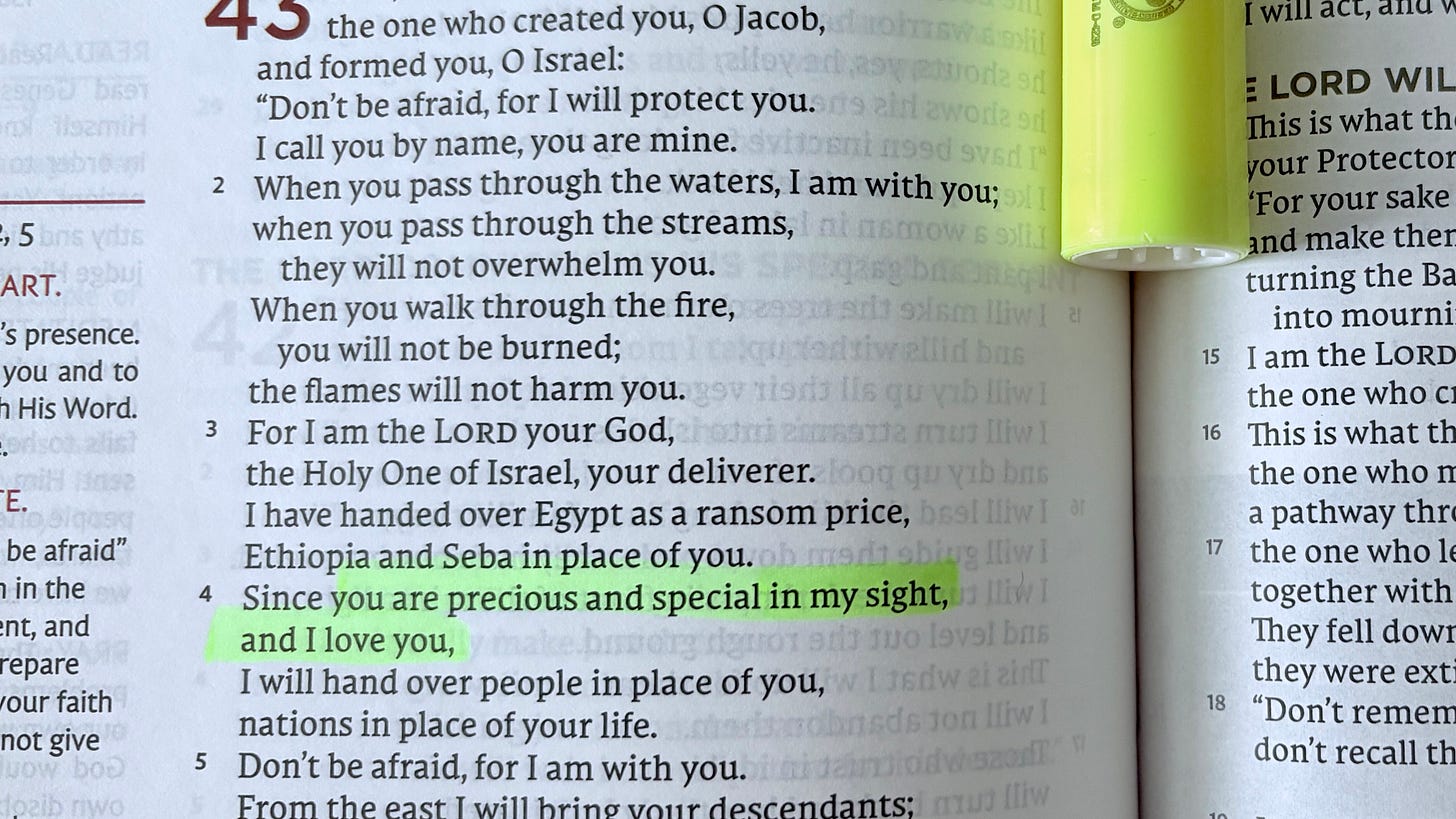 , 5
ART.
's presence.
you and to
h His Word.
E.
be afraid"
n in the
ent, and
repare
your faith
not give
43 the one who created you, O Jacob,
and formed you, O Israel:
“Don’t be afraid, for I will protect you.
I call you by name, you are mine.
2 When you pass through the waters, I am with you;
when you pass through the streams,
they will not overwhelm you.
When you walk through the fire,
you will not be burned;
the flames will not harm you.
3 For I am the LORD your God,
the Holy One of Israel, your deliverer.
I have handed over Egypt as a ransom price,
Ethiopia and Seba in place of you.
4 Since you are precious and special in my sight,
and I love you,
I will hand over people in place of you,
nations in place of your life.
5 Don’t be afraid, for I am with you.
From the east I will bring your descendants;
I will act, and w
E LORD WIL
This is what the
your Protector
“For your sake
and make them
turning the Ba
into mourni
15 I am the LORD
the one who cr
16 This is what th
the one who m
a pathway thro
17 the one who le
together with
They fell down
they were exti
18 “Don’t remem
don’t recall th